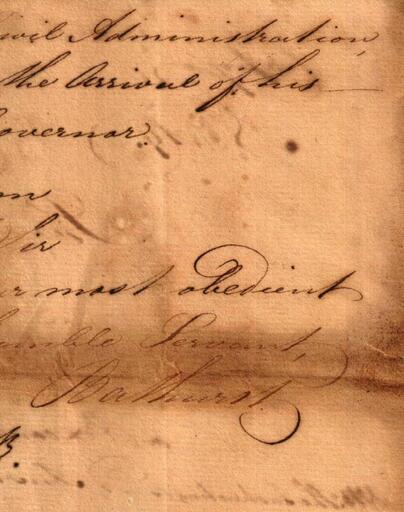 ivil Administration,
the Arrival of his
overnor.
m
Sir
ur most obedient
umble Servant,
Bathurst